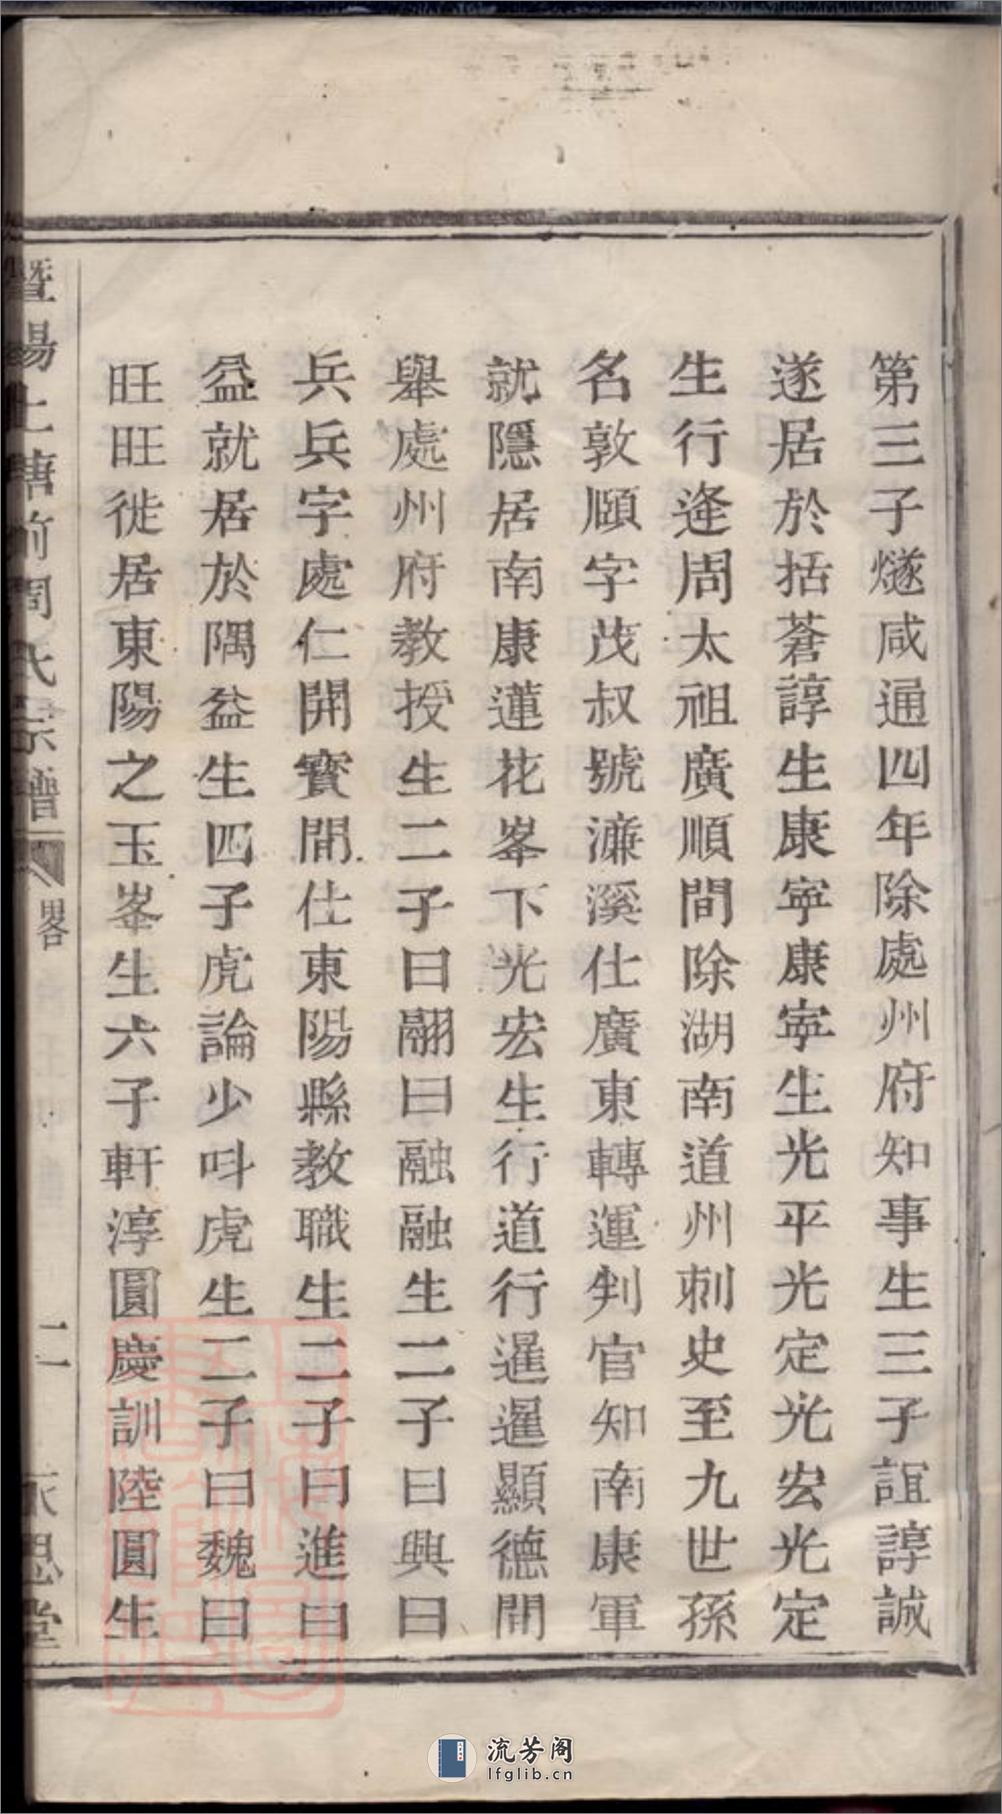 第三子燧咸通四年除處州府知事生三子誼諄誠
遂居於括蒼諄生康寧康寧生光平光定光宏光定
生行逢周太祖廣順間除湖南道州刺史至九世孫
名敦頤字茂叔號濂溪仕廣東轉運判官知南康軍
就隱居南康蓮花峯下光宏生行道行暹暹顯德間
舉處州府教授生二子曰翮曰融融生二子曰興曰
兵兵字處仁開寶間仕東陽縣教職生二子曰進曰
益就居於隅益生四子虎論少呌虎生二子曰魏曰
旺旺徙居東陽之玉峯生六子軒淳圓慶訓陸圓生
暨陽上塘前周氏宗譜
畧
二
永思堂
流芳阁
lfglib.cn